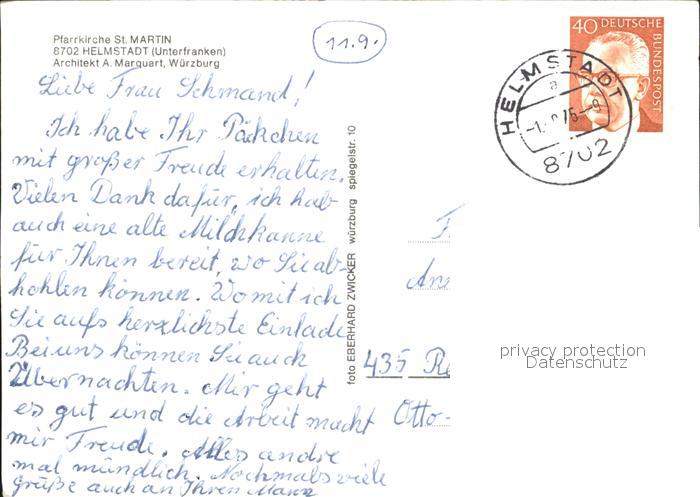 Pfarrkirche St. MARTIN
8702 HELMSTADT (Unterfranken)
Architekt A. Marquart, Würzburg
11.9.
Liebe Frau Schmand!
Ich habe Ihr Päckchen
mit großer Freude erhalten.
Vielen Dank dafür, ich hab
auch eine alte Milchkanne
für Ihnen bereit, wo Sie ab-
hohlen können. Womit ich
Sie aufs herzlichste Einlade
Bei uns können Sie auch
Übernachten. Mir geht
es gut und die Arbeit macht
mir Freude. Alles andre
mal mündlich. Nochmals viele
grüße auch an Ihren Mann
foto EBERHARD ZWICKER würzburg spiegelstr. 10
40 DEUTSCHE
BUNDESPOST
HELMSTADT
a
8702
F
An
435 Re
Otto-
privacy protection
Datenschutz